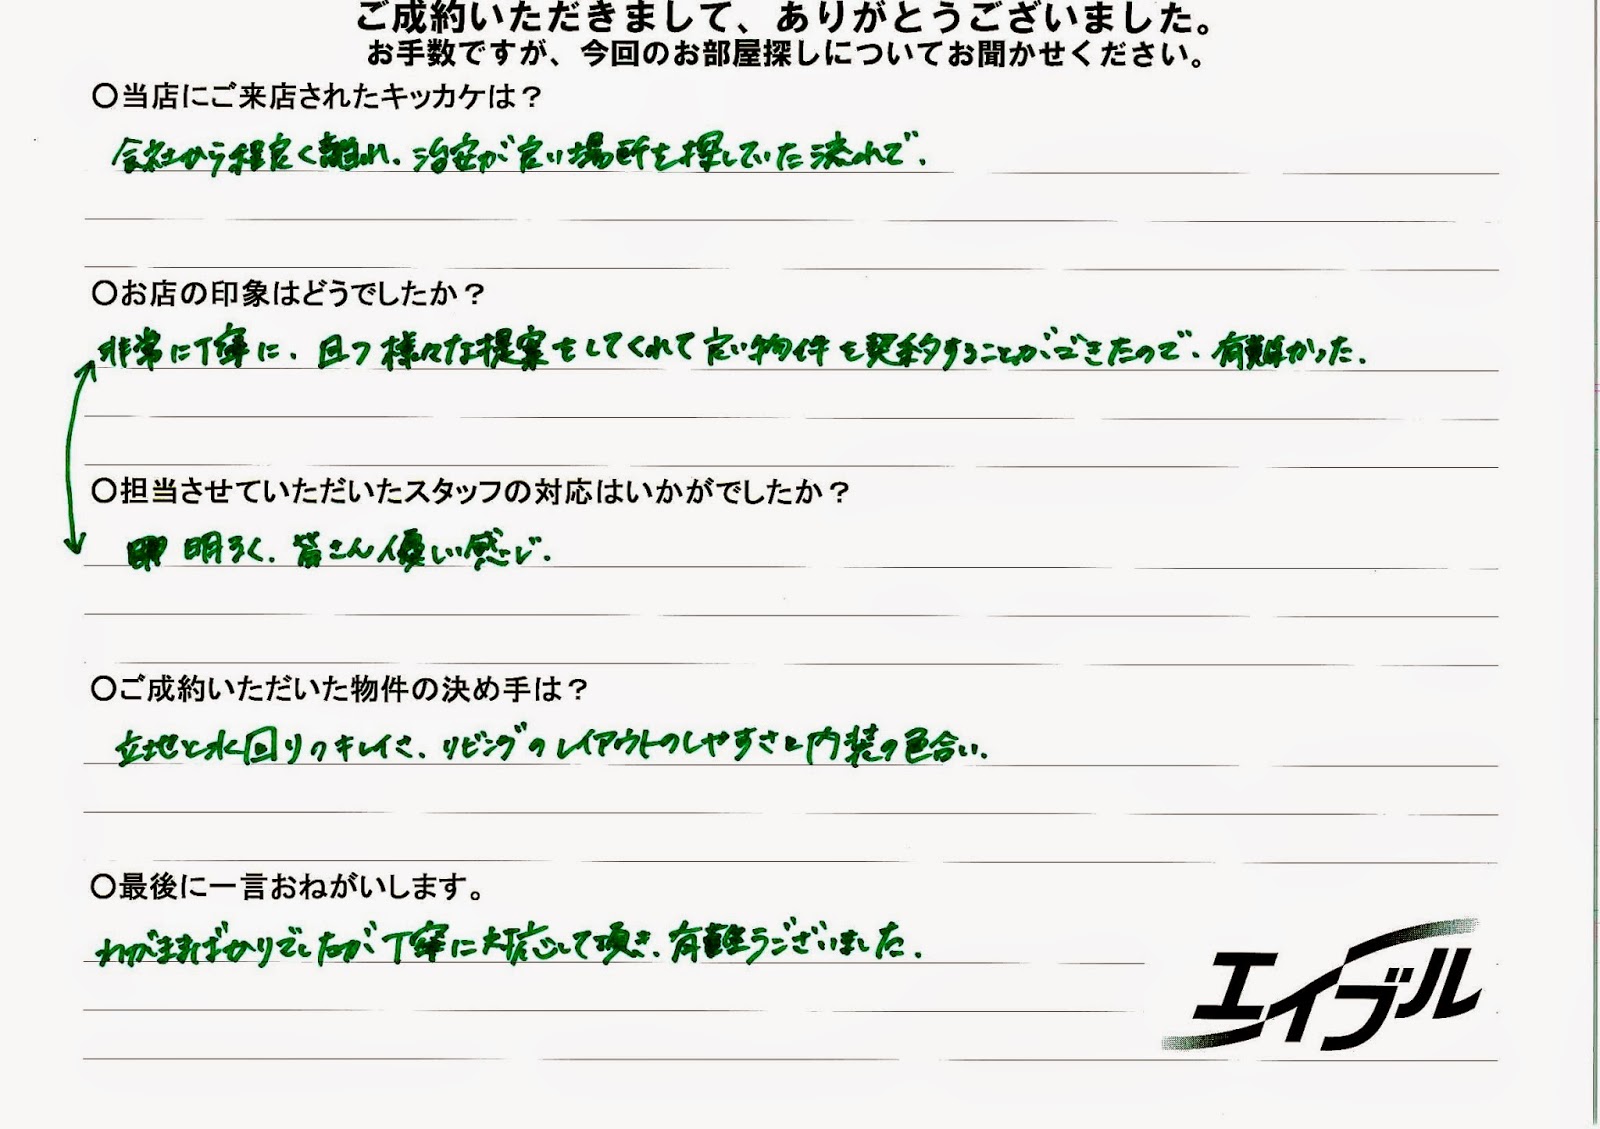 ご成約いただきまして、ありがとうございました。
お手数ですが、今回のお部屋探しについてお聞かせください。
○当店にご来店されたキッカケは？
会社から程良く離れ、治安が良い場所を探していた流れで。
○お店の印象はどうでしたか？
非常に丁寧に、且つ様々な提案をしてくれて良い物件を契約することができたので、有難かった。
○担当させていただいたスタッフの対応はいかがでしたか？
明るく、皆さん優しい感じ。
○ご成約いただいた物件の決め手は？
立地と水回りのキレイさ、リビングのレイアウトのしやすさと内装の色合い。
○最後に一言おねがいします。
わがままばかりでしたが丁寧に対応して頂き、有難うございました。
エイブル